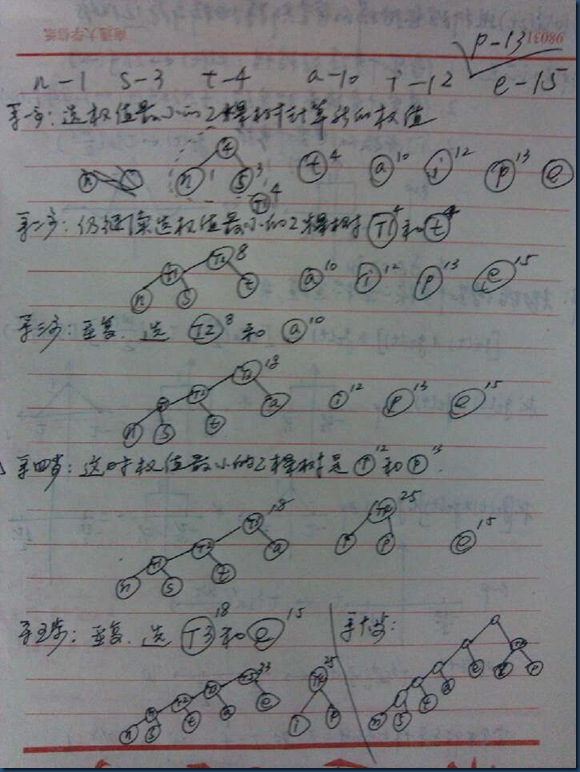 南通大学信纸
98031
p-13
n-1 s-3 t-4 a-10 i-12 e-15
第一步: 选权值最小的2棵树计算新的权值
4
n 1 s 3 t 4 a 10 i 12 p 13 e
T1 4
第二步: 仍继续选权值最小的2棵树 T1 4 和 t 4
T2 8
T1
n s t a 10 i 12 p 13 e 15
第三步: 重复. 选 T2 8 和 a 10
18
T2
n s t a i 12 p 13 e 15
第四步: 这时权值最小的2棵树是 i 12 和 p 13.
T3 18
T4 25
T2
T1
n s t a i p e 15
第五步: 重复. 选 T3 18 和 e 15
第六步:
33
25
T2
n s t a e i p
n s t a e i p